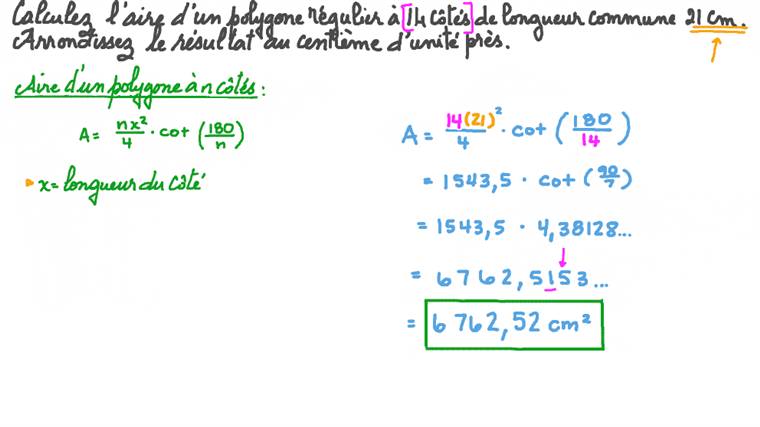 Calculez l'aire d'un polygone régulier à [14 côtés] de longueur commune 21 cm.
Arrondissez le résultat au centième d'unité près.
Aire d'un polygone à n côtés :
A = nx²/4 · cot (180/n)
x = longueur du côté
A = 14(21)²/4 · cot (180/14)
= 1543,5 · cot (90/7)
= 1543,5 · 4,38128...
= 6762,5153...
= 6762,52 cm²